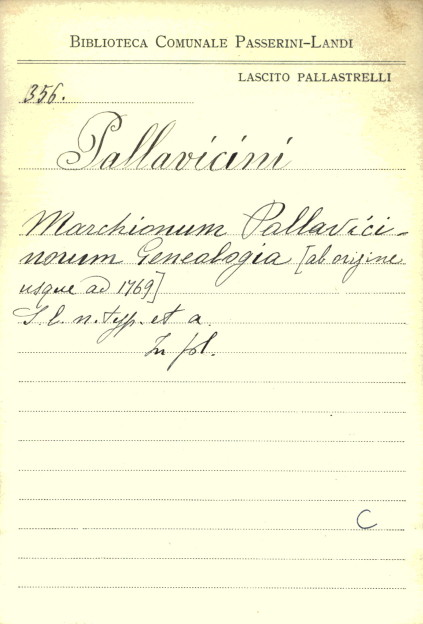 BIBLIOTECA COMUNALE PASSERINI-LANDI
LASCITO PALLASTRELLI
356.
Pallavicini
Marchionum Pallavici-
norum Genealogia [ab origine
usque ad 1769]
S. l. n. typ. et a.
In fol.
C